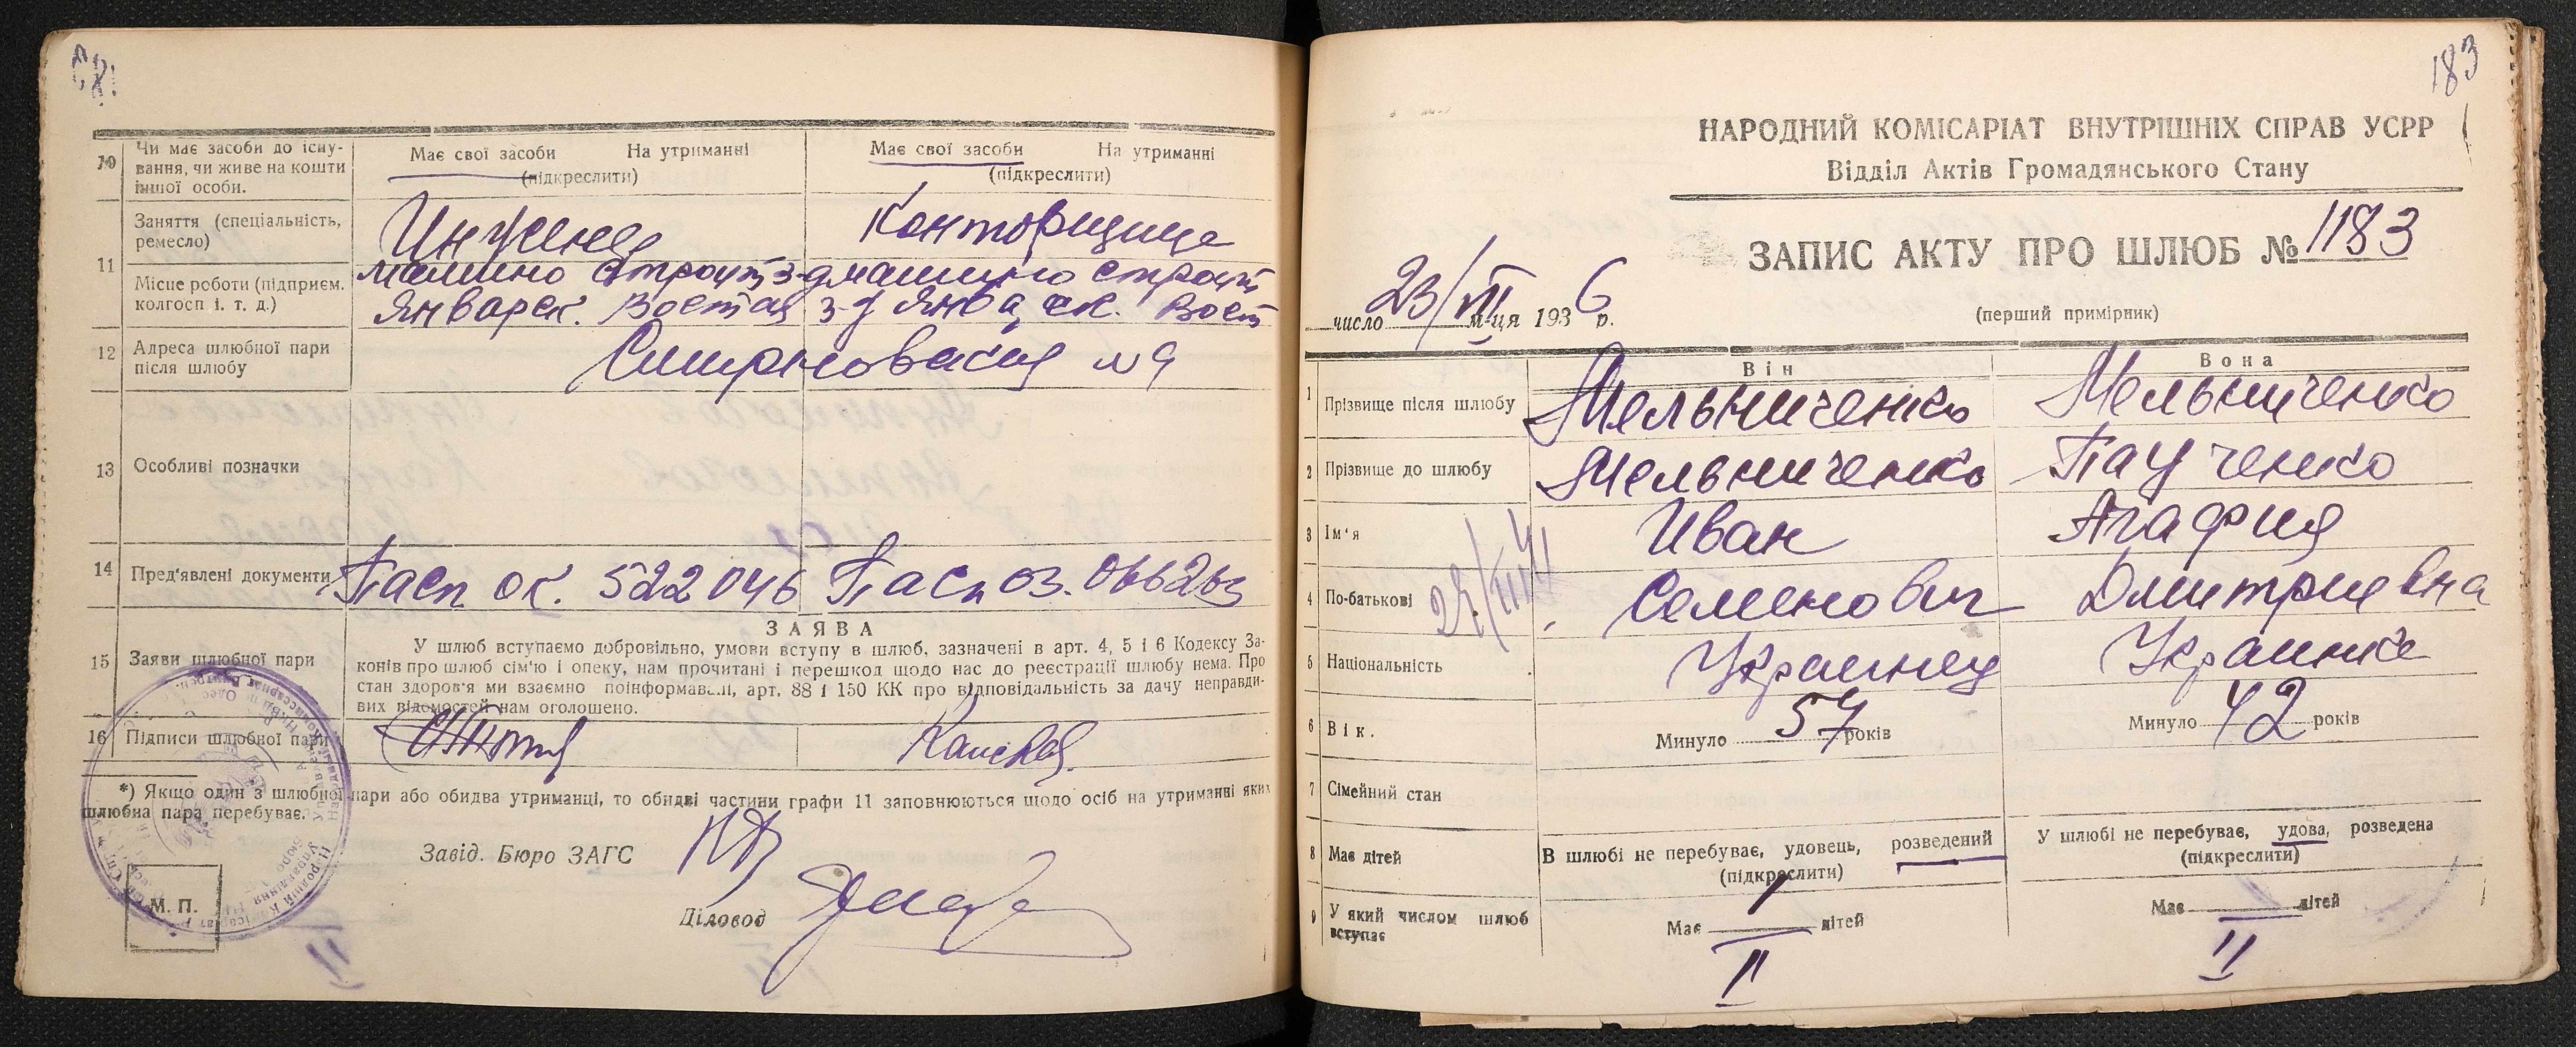 10 Чи має засоби до існу-
вання, чи живе на кошти
іншої особи.
Має свої засоби На утриманні
(підкреслити)
Має свої засоби На утриманні
(підкреслити)
11 Заняття (спеціальність,
ремесло)
Инженер
Конторщица
Місце роботи (підприєм.
колгосп і. т. д.)
машино строит з-д
Январск. Восстан
машино строит
з-д Январск. Восст
12 Адреса шлюбної пари
після шлюбу
13 Особливі позначки
14 Пред'явлені документи
Пасп ОК. 522046
Пасп ОЗ.
15 Заяви шлюбної пари
ЗАЯВА
У шлюб вступаємо добровільно, умови вступу в шлюб, зазначені в арт. 4, 5 і 6 Кодексу За-
конів про шлюб сім'ю і опеку, нам прочитані і перешкод щодо нас до реєстрації шлюбу нема. Про
стан здоров'я ми взаємно поінформавалі, арт. 88 і 150 КК про відповідальність за дачу неправди-
вих відомостей нам оголошено.
16 Підписи шлюбної пари
*) Якщо один з шлюбної пари або обидва утриманці, то обидві частини графи 11 заповнюються щодо осіб на утриманні яких
шлюбна пара перебуває.
Завід. Бюро ЗАГС
М. П.
Діловод
183
НАРОДНИЙ КОМІСАРІАТ ВНУТРІШНІХ СПРАВ УСРР
Відділ Актів Громадянського Стану
ЗАПИС АКТУ ПРО ШЛЮБ № 1183
число 23/VIII м-ця 1936 р.
(перший примірник)
Він Вона
1 Прізвище після шлюбу Мельниченко Мельниченко
2 Прізвище до шлюбу Мельниченко
3 Ім'я Иван Агафия
4 По-батькові Семенович Дмитриевна
5 Національність Украинец Украинка
6 Вік. Минуло 57 років Минуло 42 років
7 Сімейний стан
8 Має дітей
В шлюбі не перебуває, удовець, розведений
(підкреслити)
У шлюбі не перебуває, удова, розведена
(підкреслити)
Має дітей
Має дітей
9 У який числом шлюб
вступає
II
II